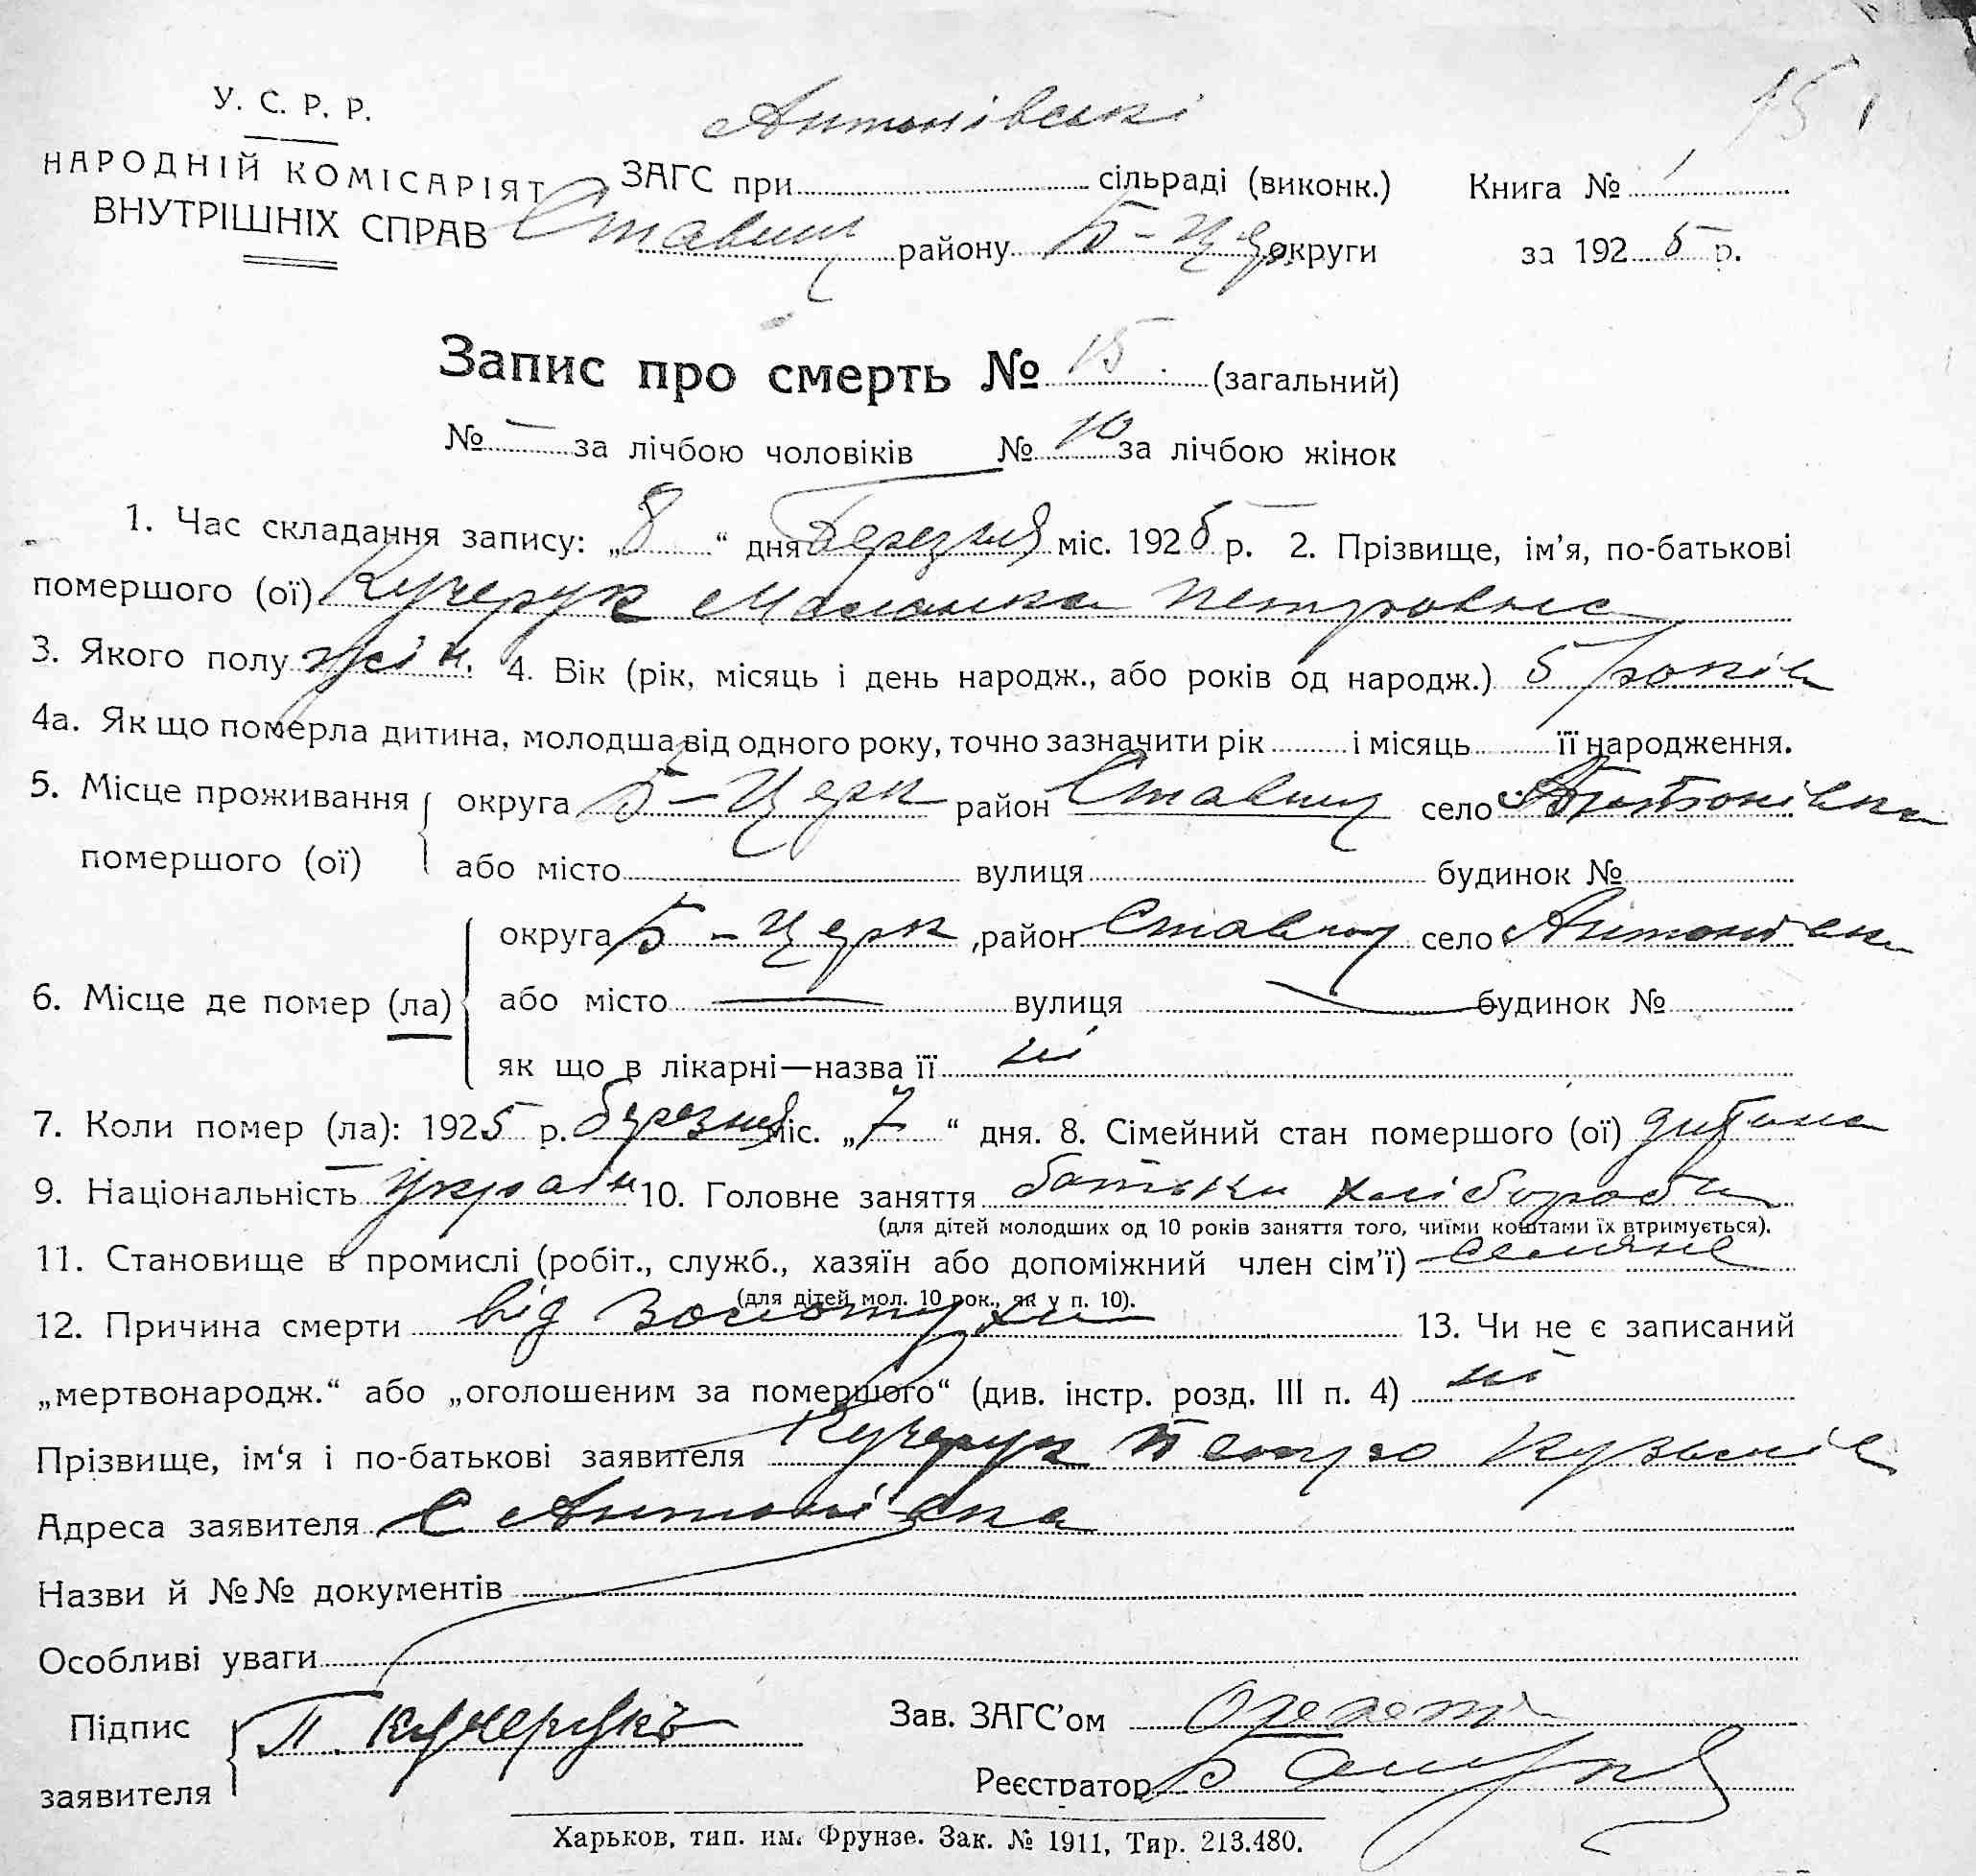 15
У. С. Р. Р.
НАРОДНІЙ КОМІСАРІЯТ
ВНУТРІШНІХ СПРАВ
ЗАГС при Антонівські сільраді (виконк.) Книга № 1
Ставищ району Б-Церк округи за 1925 р.
Запис про смерть № 15 (загальний)
№ — за лічбою чоловіків № 10 за лічбою жінок
1. Час складання запису: „8“ дня Березня міс. 1925 р. 2. Прізвище, ім'я, по-батькові
помершого (ої) Кучерук Маланка Петровна
3. Якого полу жін. 4. Вік (рік, місяць і день народж., або років од народж.) 5 років
4а. Як що померла дитина, молодша від одного року, точно зазначити рік і місяць її народження.
5. Місце проживання помершого (ої) округа Б-Церк район Ставищ село Антонівка
або місто вулиця будинок №
6. Місце де помер (ла) округа Б-Церк, район Ставищ село Антонівка
або місто — вулиця — будинок №
як що в лікарні—назва її ні
7. Коли помер (ла): 1925 р. березня міс. „7“ дня. 8. Сімейний стан помершого (ої) дитина
9. Національність україн 10. Головне заняття батьки хлібороби
(для дітей молодших од 10 років заняття того, чиїми коштами їх втримується).
11. Становище в промислі (робіт., служб., хазяїн або допоміжний член сім'ї) селяне
(для дітей мол. 10 рок., як у п. 10).
12. Причина смерти від золотухи 13. Чи не є записаний
„мертвонародж.“ або „оголошеним за помершого“ (див. інстр. розд. III п. 4) ні
Прізвище, ім'я і по-батькові заявителя Кучерук Петро Кузьмів
Адреса заявителя С Антонівка
Назви й №№ документів
Особливі уваги
Підпис заявителя П. Кучерукъ
Зав. ЗАГС'ом
Реєстратор
Харьков, тип. им. Фрунзе. Зак. № 1911, Тир. 213.480.